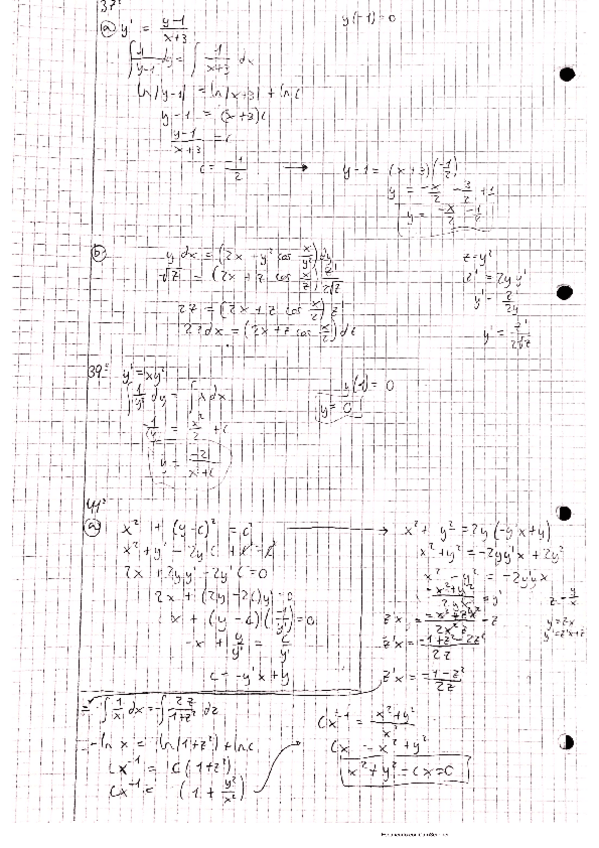 37:
a) y' = (y-1)/(x+3)    y(-1) = 0
∫ 1/(y-1) dy = ∫ 1/(x+3) dx
ln|y-1| = ln|x+3| + ln c
y-1 = (x+3)c
(y-1)/(x+3) = c
c = -1/2 → y-1 = (x+3)(-1/2)
y = -x/2 - 3/2 + 1
y = -x/2 - 1/2
b) y dx = (2x - y² cos x/y²) dy    z = y²
√z = (2x + z cos x/z) z'/2√z    z' = 2y y'
y' = z'/2y
2z = (2x + z cos x/z) z'
2z dx = (2x + z cos x/z) dz    y' = z'/2√z
39: y' = xy²    y(1) = 0
∫ 1/y² dy = ∫ x dx    y = 0
1/y = x²/2 + c
y = -2/(x+c)
a) x² + (y-c)² = c² → x² + y² = 2y(-y'x+y)
x² + y² - 2yc + c² = c²    x² + y² = -2yy'x + 2y²
2x + 2yy' - 2y'c = 0    x² - y² = -2y'yx
2x + (2y - 2c)y' = 0    (-x²+y²)/2yx = y'    z = y/x
x + (y-c)(-1/y') = 0    z'x = (-x²+z²x²)/2x²z - z    y = zx
y' = z'x+z
-x + y/y' = c/y'    z'x = (-1+z²-2z²)/2z
c = -y'x + y    z'x = (-1-z²)/2z
= ∫ 1/x dx = -∫ 2z/(1+z²) dz
-ln x = ln(1+z²) + ln c
cx⁻¹ = c(1+z²)
cx⁻¹ = (1 + y²/x²)
cx⁻¹ = (x²+y²)/x²
cx = x² + y²
x² + y² - cx = 0